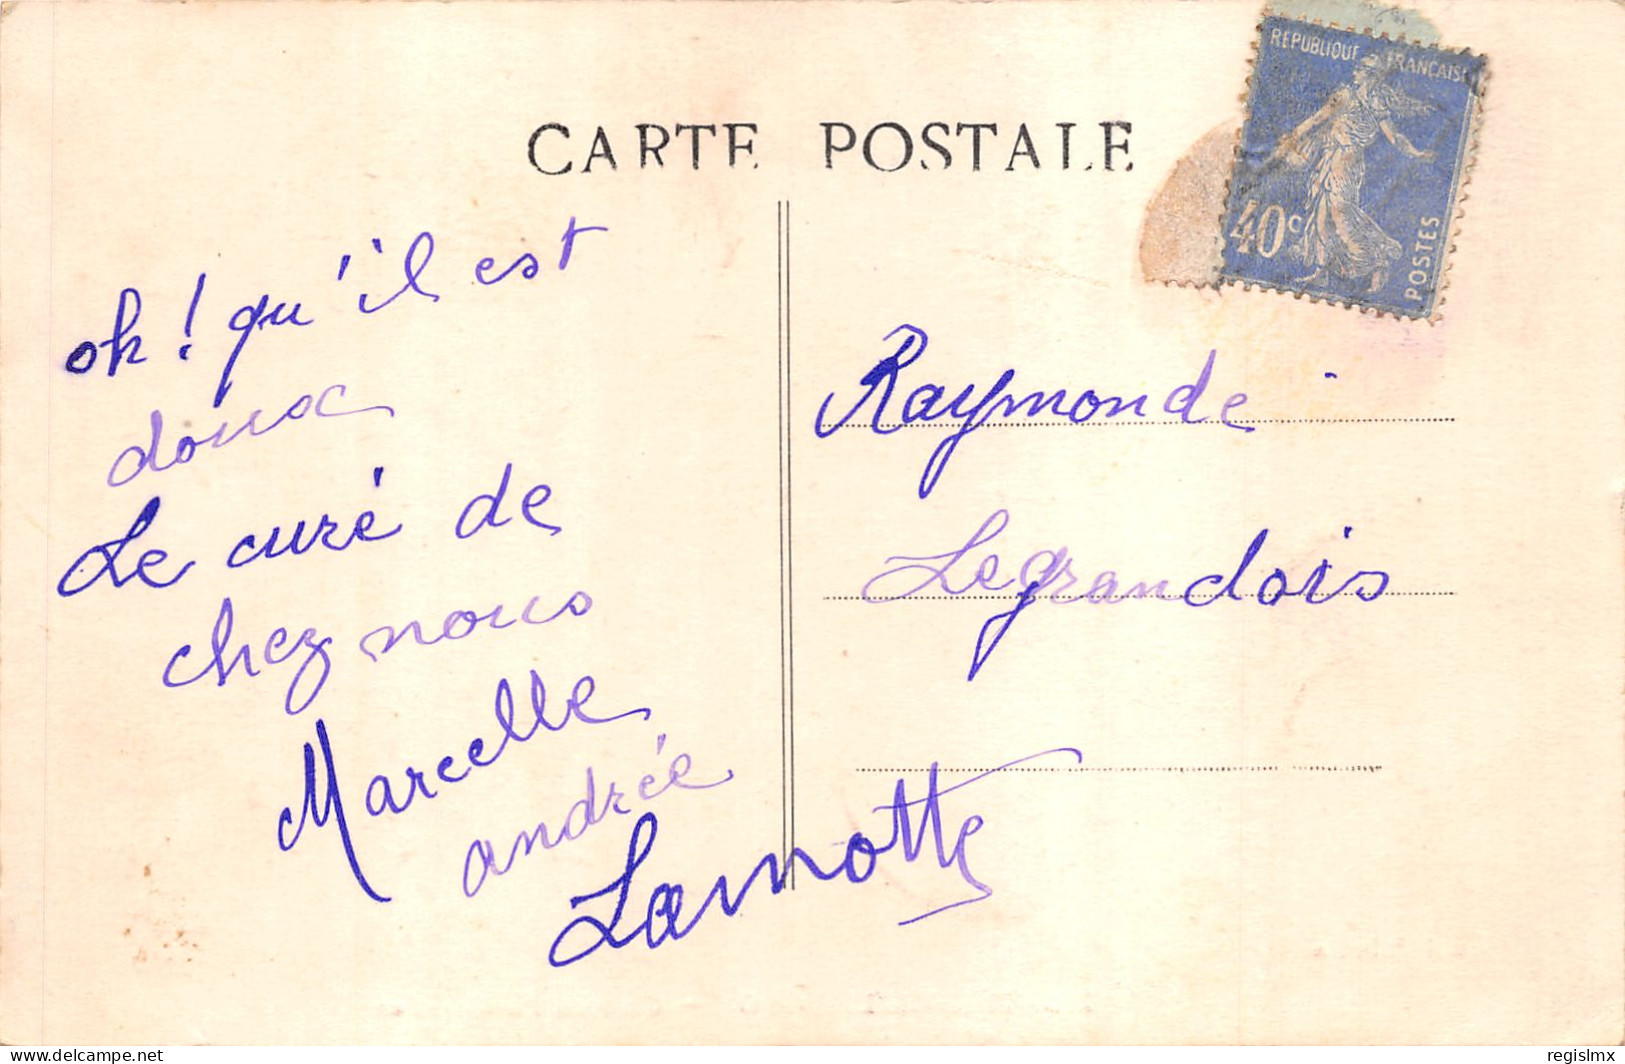 CARTE POSTALE
REPUBLIQUE FRANCAISE
40c
POSTES
oh! qu'il est
doux
Le curé de
chez nous
Marcelle
andrée
Lamotte
Raymonde
Legrandois
delcampe.net
regislmx